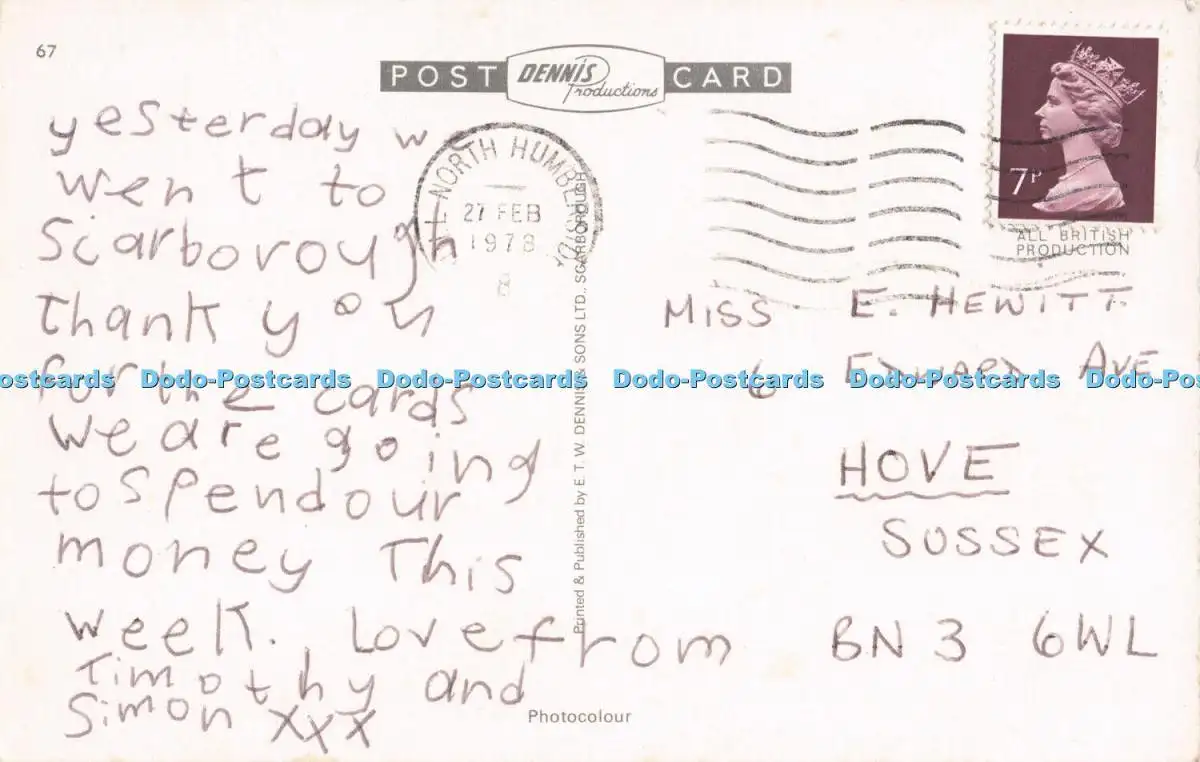 67
POST DENNIS Productions CARD
yesterday w
went to
Scarborough
thank you
for the cards
we are going
to spend our
money This
week. Love from
Timothy and
Simon xxx
NORTH HUMBE
27 FEB
1978
8
7P
ALL BRITISH
PRODUCTION
MISS E. HEWITT
6 EDWARD AVE
HOVE
SUSSEX
BN3 6WL
Printed & Published by E. T. W. DENNIS & SONS LTD., SCARBOROUGH
Photocolour
Dodo-Postcards Dodo-Postcards Dodo-Postcards Dodo-Postcards Dodo-Postcards Dodo-Postcards